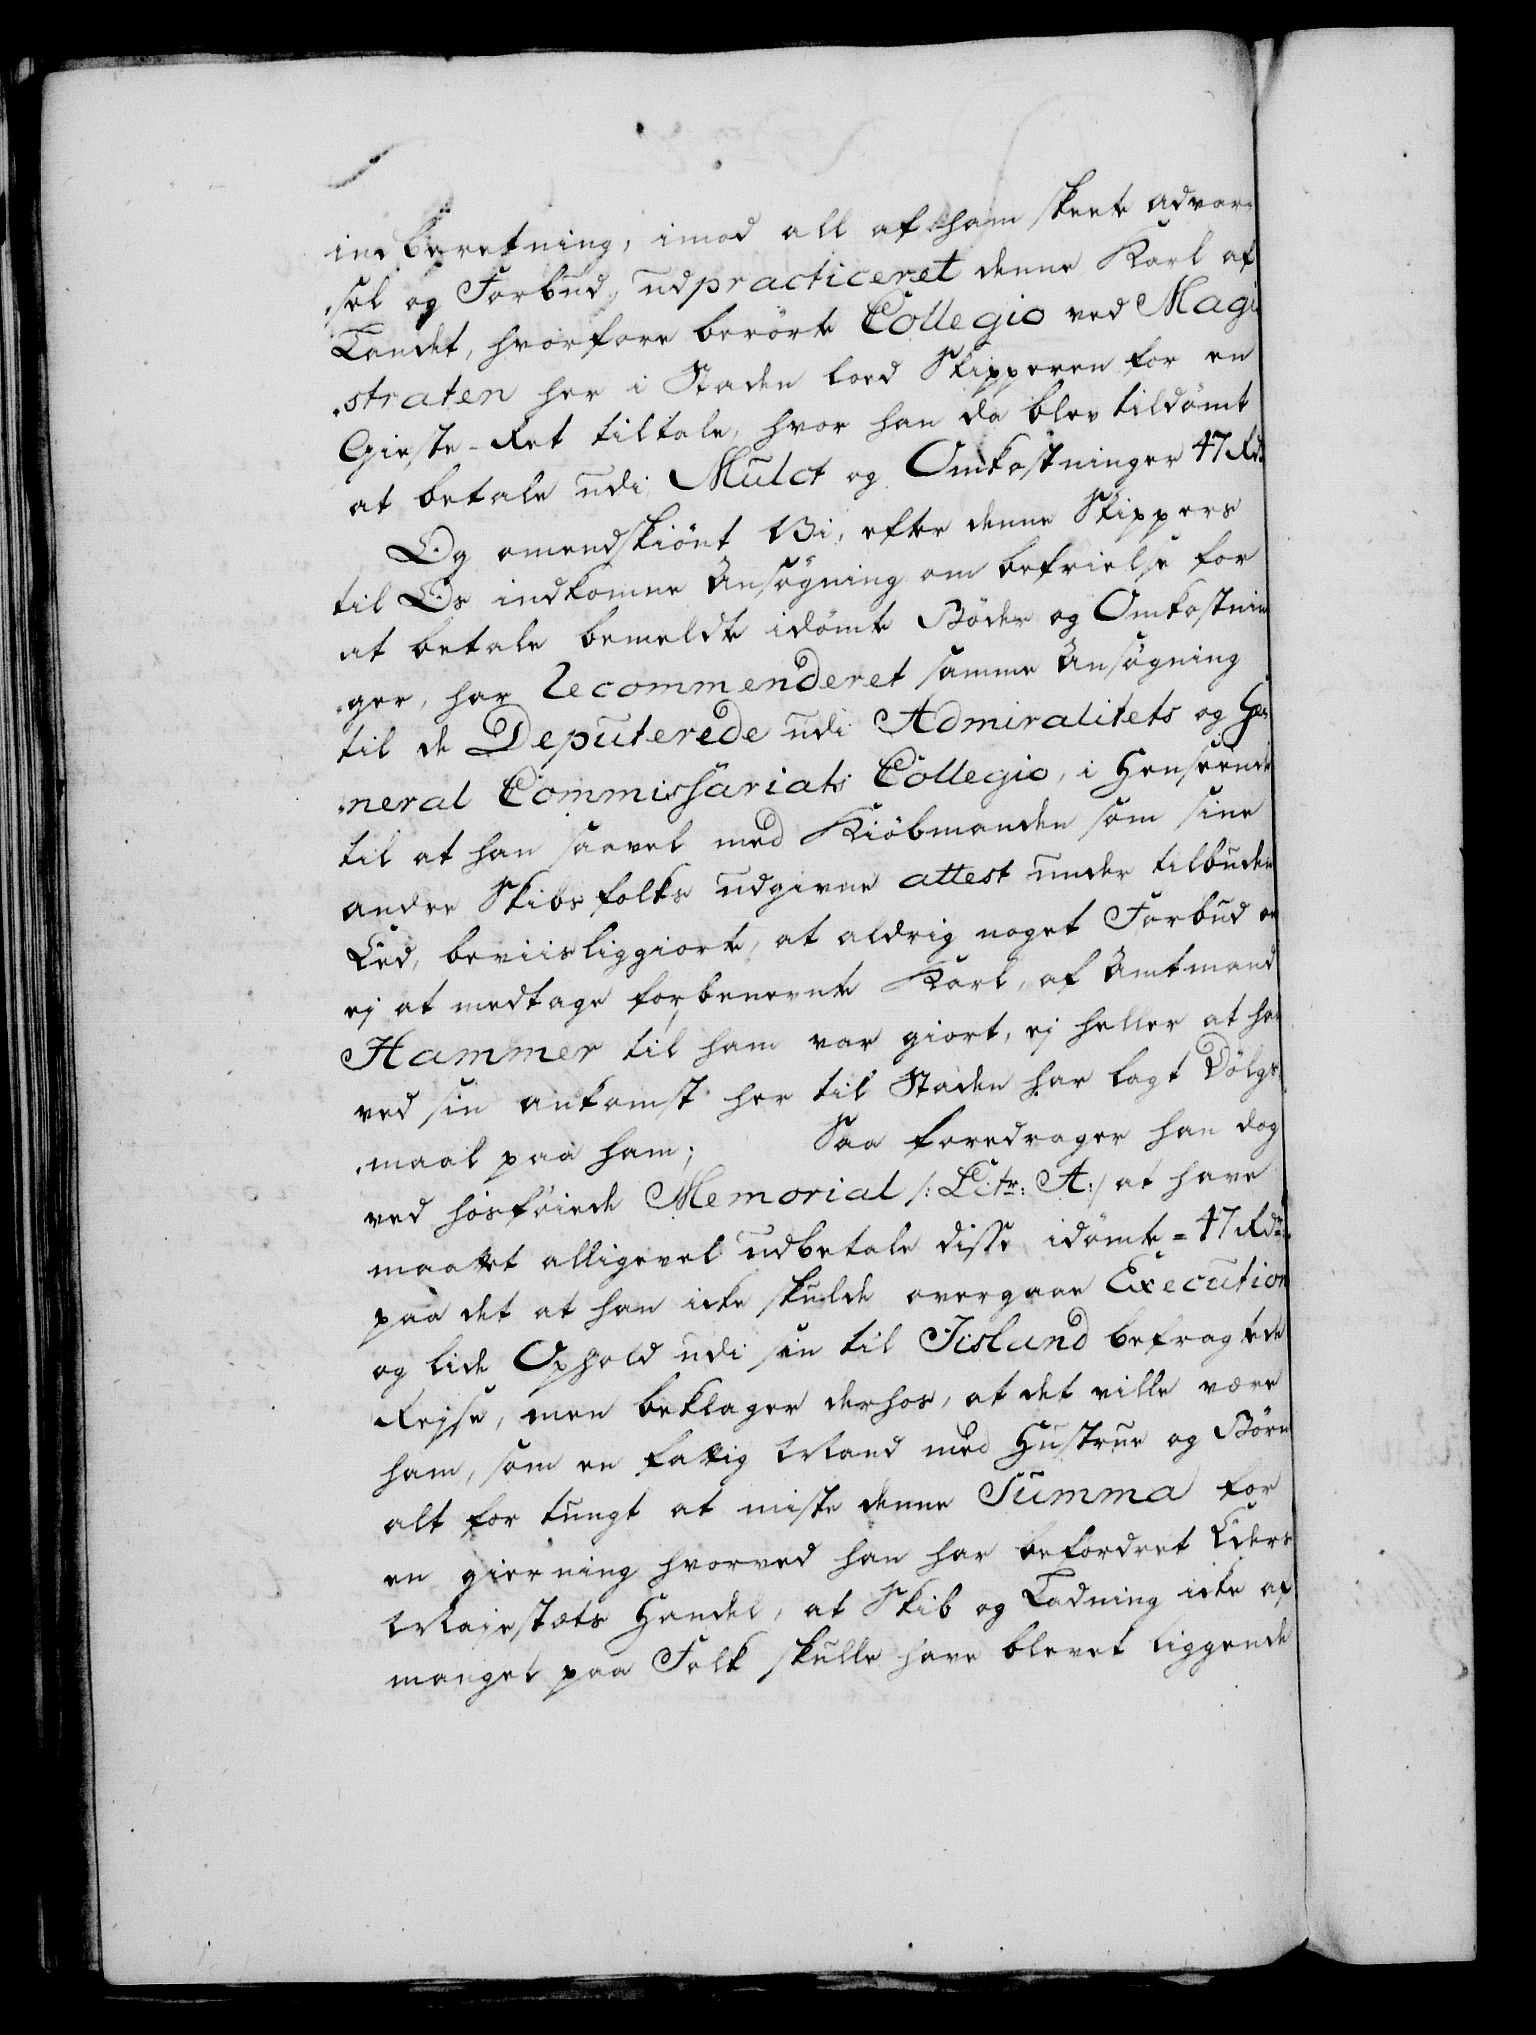 indberetning, imod all af ham skeete advar-
sel og Forbud, udpracticeret denne Karl af
Landet, hvorfore berørte Collegio ved Magi
straten her i Staden loed Skipperen for en
Gieste-Ret tiltale, hvor han da blev tildømt
at betale udi Mulct og Omkostninger 47 Rdr
Og omendskiønt Vi, efter denne Skippers
til Os indkomne Ansøgning om befrielse for
at betale bemeldte idømte Bøder og Omkostnin
ger, har recommenderet samme Ansøgning
til de Deputerede udi Admiralitets og Ge
neral Commissariats Collegio, i Henseende
til at han saavel med Kiøbmanden som sine
andre Skibsfolks udgivne attest under tilbuden
Eed, beviisliggiorte, at aldrig noget Forbud om
ej at medtage forbenevnte Karl, af Amtmand
Hammer til ham var giort, ej heller at han
ved sin ankomst her til Staden har lagt Dølgs
maal paa ham; Saa foredrager han dog
ved hosføiede Memorial /: Litr: A:/ at have
maattet alligevel udbetale disse idømte = 47 Rdr
paa det at han icke skulde overgaae Execution
og lide Ophold udi sin til Iisland befragtede
Rejse, men beklager derhos, at det ville være
ham, som en fattig Mand med Hustrue og Børn
alt for tungt at miste denne Summa for
en gierning hvorved han har befordret Eders
Majestæts Handel, at Skib og Ladning icke af
mangel paa Folk skulle have blevet liggende